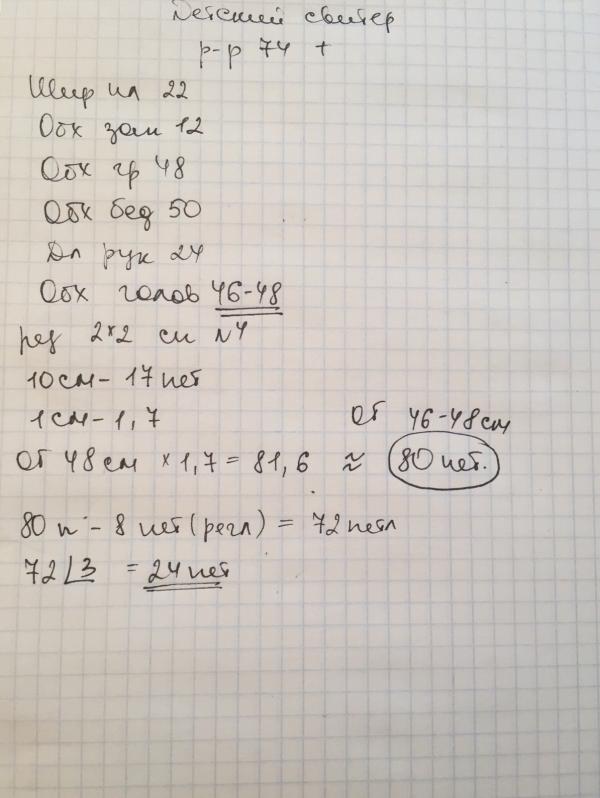 Детский свитер
р-р 74 +
Шир пл 22
Обх зап 12
Обх гр 48
Обх бед 50
Дл рук 24
Обх голов 46-48
рез 2×2 сп N4
10см - 17 пет
1см - 1,7
ОГ 46-48см
ОГ 48см × 1,7 = 81,6 ≈ 80 пет.
80 п - 8 пет (регл) = 72 петл
72 : 3 = 24 пет